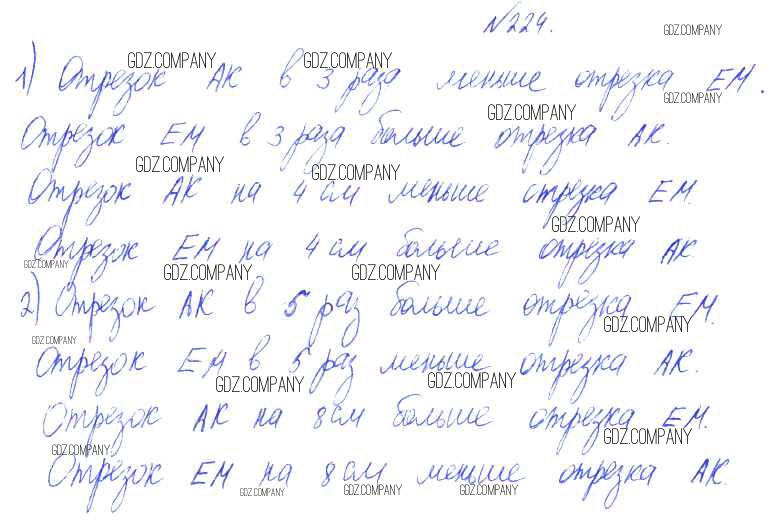 №224.
GDZ.COMPANY
1) Отрезок АК в 3 раза меньше отрезка ЕМ.
GDZ.COMPANY GDZ.COMPANY GDZ.COMPANY
Отрезок ЕМ в 3 раза больше отрезка АК.
GDZ.COMPANY
GDZ.COMPANY GDZ.COMPANY
Отрезок АК на 4 см меньше отрезка ЕМ.
GDZ.COMPANY
Отрезок ЕМ на 4 см больше отрезка АК.
GDZ.COMPANY GDZ.COMPANY GDZ.COMPANY
2) Отрезок АК в 5 раз больше отрезка ЕМ.
GDZ.COMPANY
GDZ.COMPANY
Отрезок ЕМ в 5 раз меньше отрезка АК.
GDZ.COMPANY GDZ.COMPANY
Отрезок АК на 8 см больше отрезка ЕМ.
GDZ.COMPANY
GDZ.COMPANY
Отрезок ЕМ на 8 см меньше отрезка АК.
GDZ.COMPANY GDZ.COMPANY GDZ.COMPANY